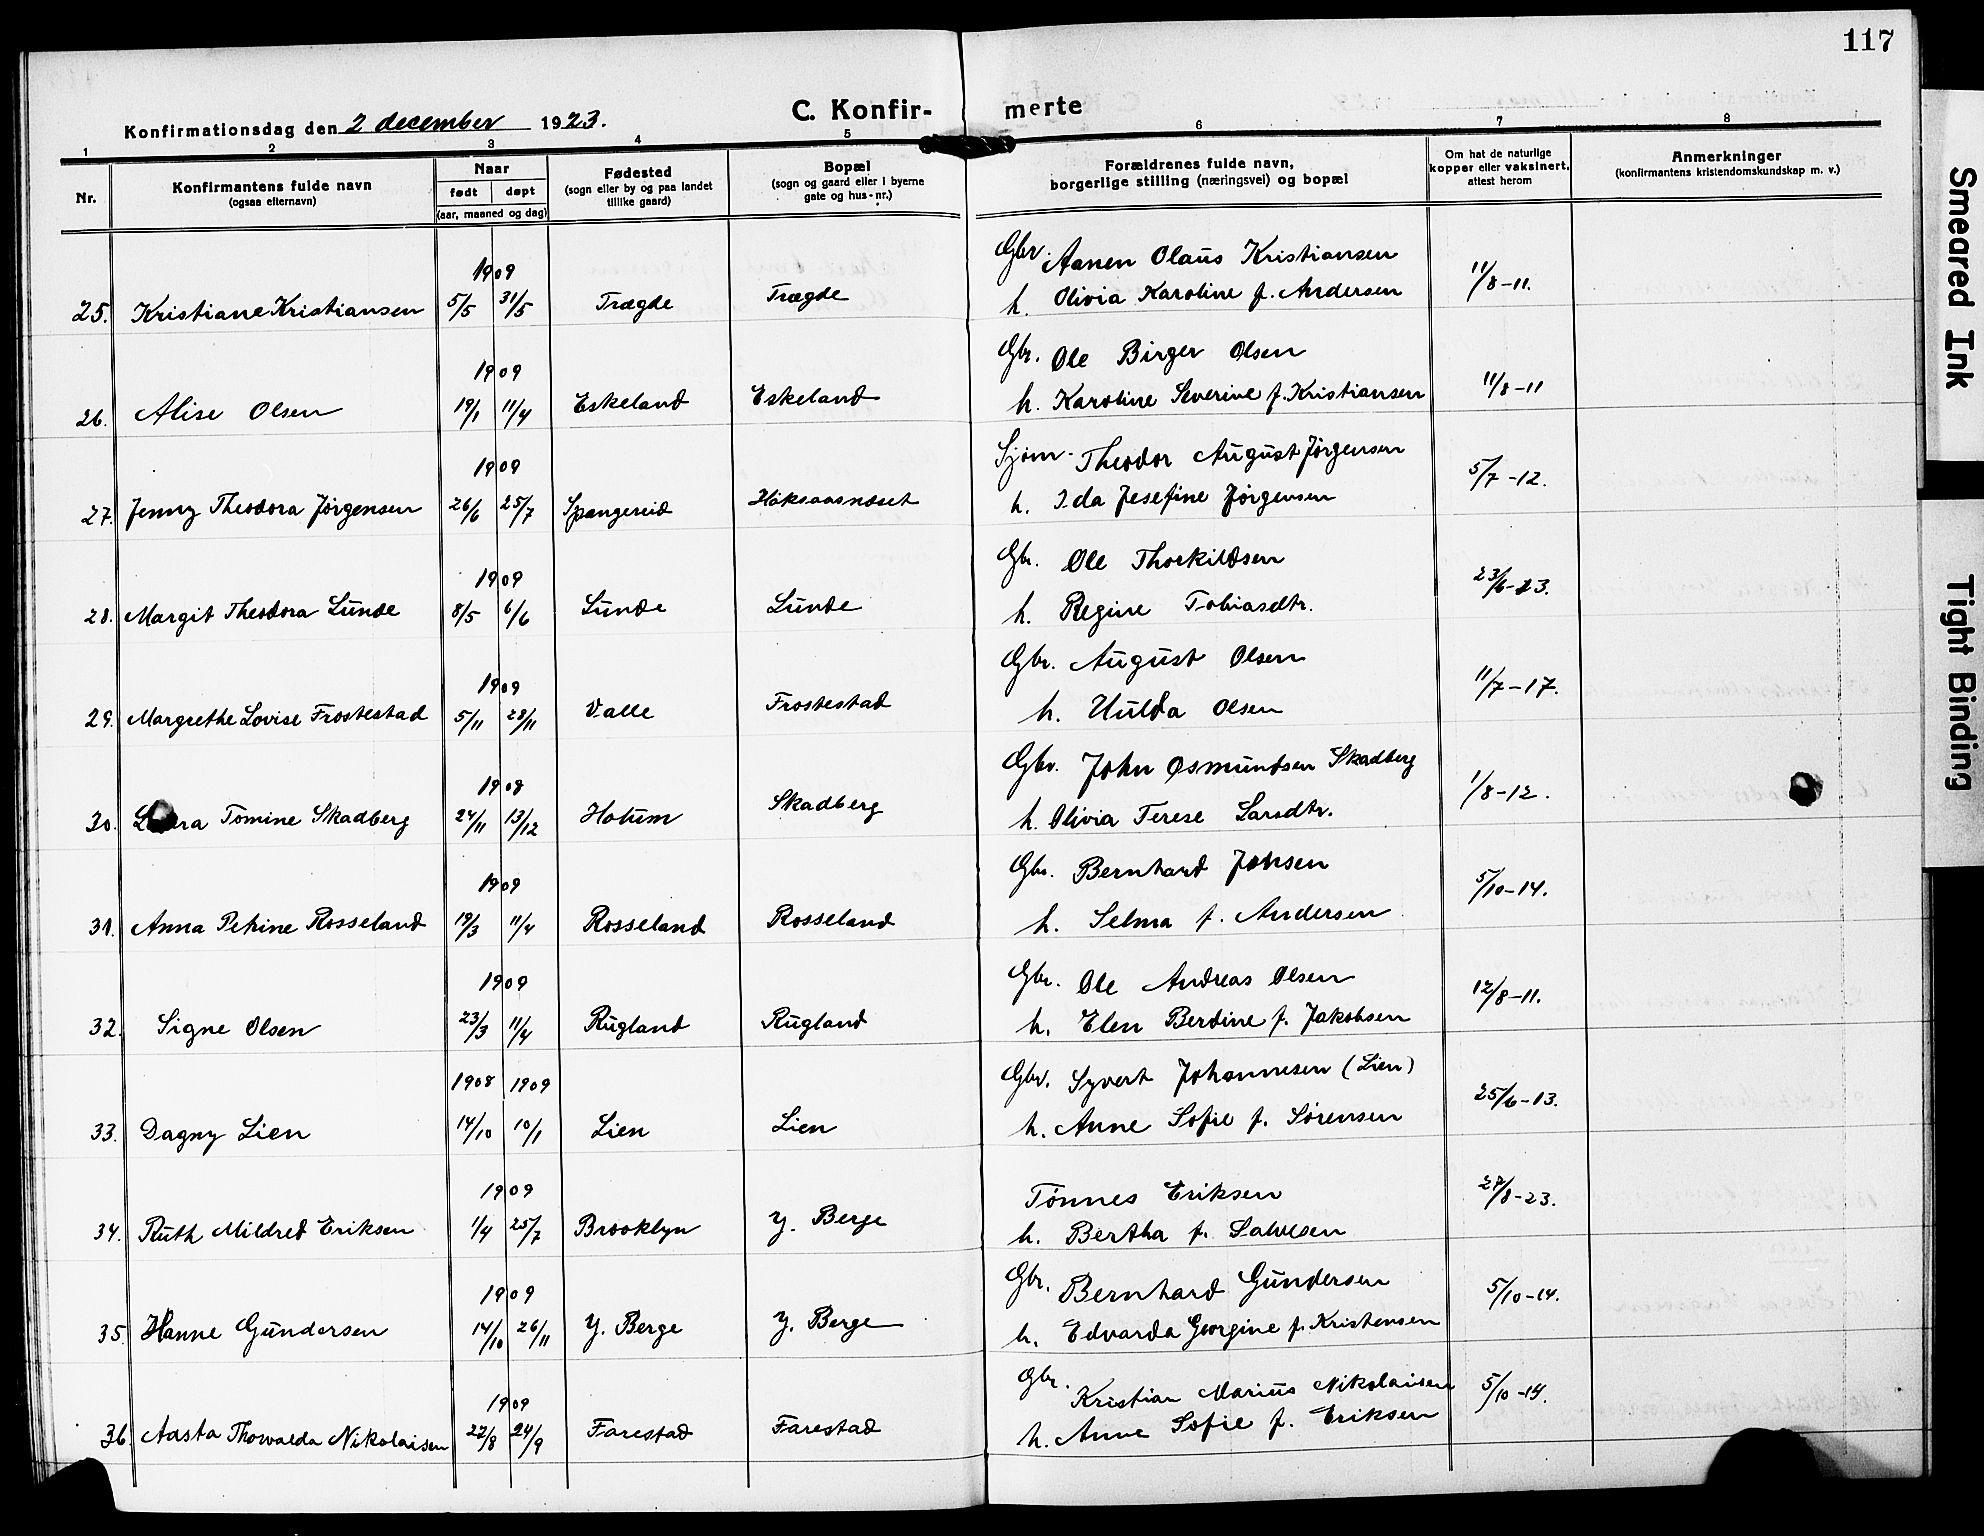 117
Konfirmationsdag den 2 december 1923.
C. Konfir- merte
1 2 3 4 5 6 7 8
Nr.
Konfirmantens fulde navn
(ogsaa efternavn)
Naar
født døpt
(aar, maaned og dag)
Fødested
(sogn eller by og paa landet
tillike gaard)
Bopæl
(sogn og gaard eller i byerne
gate og hus-nr.)
Forældrenes fulde navn,
borgerlige stilling (næringsvei) og bopæl
Om hat de naturlige
kopper eller vaksinert,
attest herom
Anmerkninger
(konfirmantens kristendomskundskap m. v.)
1909 Gbr. Aanen Olaus Kristiansen
25. Kristiane Kristiansen 5/5 31/5 Trægde Trægde h. Olivia Karoline f. Andersen 11/8-11.
1909 Gbr. Ole Birger Olsen
26. Alise Olsen 19/1 11/4 Eskeland Eskeland h. Karoline Severine f. Kristiansen 11/8-11
1909 Sjøm. Theodor August Jørgensen
27. Jenny Theodora Jørgensen 26/6 25/7 Spangereid Høksaasnæset h. Ida Jesefine Jørgensen 5/7-12.
1909 Gbr. Ole Thorkildsen
28. Margit Theodora Lunde 8/5 6/6 Lunde Lunde h. Regine Tobiasdtr. 23/6-23.
1909 Gbr. August Olsen
29. Margrethe Lovise Frostestad 5/11 28/11 Valle Frostestad h. Hulda Olsen 11/7-17.
1908 Gbr. John Osmundsen Skadberg
30. Tomine Skadberg 24/11 13/12 Holum Skadberg h. Olivia Terese Larsdtr. 1/8-12.
1909 Gbr. Bernhard Johsen
31. Anna Petrine Rosseland 19/3 11/4 Rosseland Rosseland h. Selma f. Andersen 5/10-14.
1909 Gbr. Ole Andreas Olsen
32. Signe Olsen 23/3 11/4 Rugland Rugland h. Elen Berdine f. Jakobsen 12/8-11.
1908 1909 Gbr. Syvert Johannesen (Lien)
33. Dagny Lien 14/10 10/1 Lien Lien h. Anne Sofie f. Sørensen 25/6-13.
1909 Tønnes Eriksen
34. Ruth Mildred Eriksen 1/4 25/7 Brooklyn Y. Berge h. Bertha f. Salvesen 27/8-23.
1909 Gbr. Bernhard Gundersen
35. Hanne Gundersen 14/10 26/11 Y. Berge Y. Berge h. Edvarda Georgine f. Kristensen 5/10-14.
1909 Gbr. Kristian Marius Nikolaisen
36. Aasta Thowalda Nikolaisen 22/8 24/9 Farestad Farestad h. Anne Sofie f. Eriksen 5/10-14.
Smeared Ink
Tight Binding